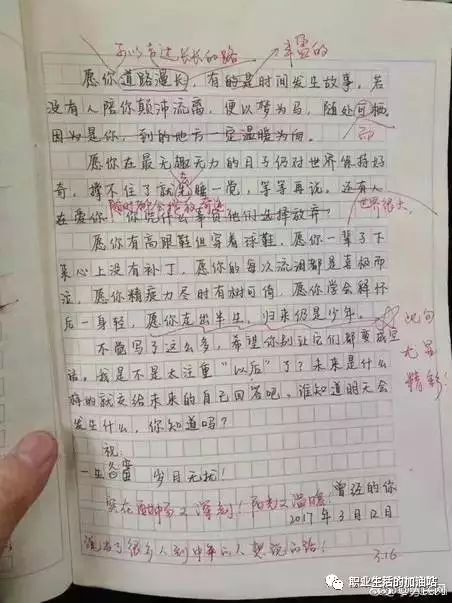 丰盈的
愿你道路漫长，有的是时间发生故事。若
没有人陪你颠沛流离，便以梦为马，随处可栖。
因为是你，到的地方一定温暖为向。
愿你在最无趣无力的日子仍对世界保持好
奇，撑不住了就先睡一觉，等等再说，还有人
世界很大
在爱你，你凭什么辜负他们选择放弃？
愿你有高跟鞋但穿着球鞋，愿你一辈子下
来心上没有补丁，愿你的每次流泪都是喜极而
泣，愿你精疲力尽时有树可倚，愿你学会释怀
后一身轻，愿你走出半生，归来仍是少年。
此句
尤其
精彩！
不觉写了这么多，希望你别让它们都变成空
话。我是不是太注重“以后”了？未来是什么
样的就交给未来的自己回答吧，谁知道明天会
发生什么，你知道吗？
祝：
一生 岁月无扰！
曾经的你
实在 又深刻！阳光又温暖！
2017年3月12日
很多人到中年的人 的话！
3.16
职业生活的加油站